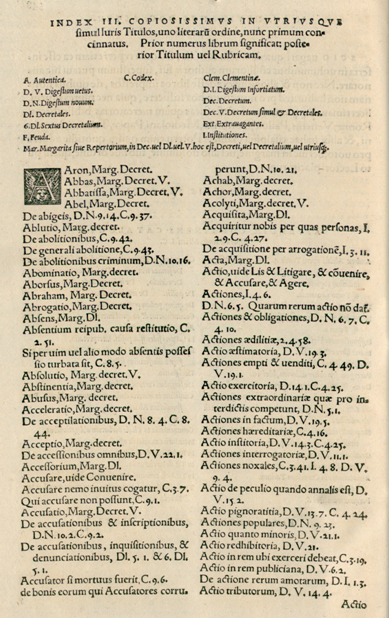 INDEX III. COPIOSISSIMVS IN VTRIVSQVE
simul Iuris Titulos, uno literarũ ordine, nunc primum con-
cinnatus. Prior numerus librum significat: poste-
rior Titulum uel Rubricam.
A. Autentica.
C. Codex.
Clem. Clementinæ.
D. V. Digestum uetus.
D.I. Digestum Infortiatum.
D.N. Digestum nouum.
Dec. Decretum.
Dl. Decretales.
Dec. V. Decretum simul & Decretales.
6. Dl. Sextus Decretalium.
Ext. Extrauagantes.
F. Feuda.
I. Institutiones.
Mar. Margarita siue Repertorium, in Dec. uel Dl. uel V. hoc est, Decreti, uel Decretalium, uel utriusq;.
AAron, Marg. Decret.
Abbas, Marg. Decret. V.
Abbatissa, Marg. Decret. V.
Abel, Marg. Decret.
De abigeis, D. N. 9. 14. C. 9. 37.
Ablutio, Marg. decret.
De abolitionibus, C. 9. 42.
De generali abolitione, C. 9. 43.
De abolitionibus criminum, D. N. 10. 16.
Abominatio, Marg. decret.
Aborsus, Marg. Decret.
Abraham, Marg. Decret.
Abrogatio, Marg. Decret.
Absens, Marg. Dl.
Absentium reipub. causa restitutio, C.
2. 51.
Si per uim uel alio modo absentis posses
sio turbata sit, C. 8. 5.
Absolutio, Marg. decret. V.
Abstinentia, Marg. decret.
Abusus, Marg. decret.
Acceleratio, Marg. decret.
De acceptilationibus, D. N. 8. 4. C. 8.
44.
Acceptio, Marg. decret.
De accessionibus omnibus, D. V. 22. 1.
Accessorium, Marg. Dl.
Accusare, uide Conuenire.
Accusare nemo inuitus cogatur, C. 3. 7.
Qui accusare non possunt, C. 9. 1.
Accusatio, Marg. Decret. V.
De accusationibus & inscriptionibus,
D. N. 10. 2. C. 9. 2.
De accusationibus, inquisitionibus, &
denunciationibus, Dl. 5. 1. & 6. Dl.
5. 1.
Accusator si mortuus fuerit, C. 9. 6.
de bonis eorum qui Accusatores corru.
perunt, D. N. 10. 21.
Achab, Marg. decret.
Achor, Marg. decret.
Acolyti, Marg. decret. V.
Acquisita, Marg. Dl.
Acquiritur nobis per quas personas, I.
2. 9. C. 4. 27.
De acquisitione per arrogationẽ, I. 3. 11.
Acta, Marg. Dl.
Actio, uide Lis & Litigare, & cõuenire,
& Accusare, & Agere.
Actiones, I. 4. 6.
D. N. 6. 5. Quarum rerum actio nõ daĩ.
Actiones & obligationes, D. N. 6. 7. C,
4. 10.
Actiones ædilitiæ, 2. 4. 58.
Actio æstimatoria, D. V. 19. 3.
Actiones empti & uenditi, C. 4. 49. D.
V. 19. 1.
Actio exercitoria, D. 14. 1. C. 4. 25.
Actiones extraordinariæ quæ pro in
terdictis competunt, D. N. 5. 1.
Actiones in factum, D. V. 19. 5.
Actiones hæreditariæ, C. 4. 16.
Actio institoria, D. V. 14. 3. C. 4. 25.
Actiones interrogatoriæ, D. V. 11. 1.
Actiones noxales, C. 3. 41. I. 4. 8. D. V.
9. 4.
Actio de peculio quando annalis est, D,
V. 15. 2.
Actio pignoratitia, D. V. 13. 7. C. 4. 24.
Actiones populares, D. N. 9. 23.
Actio quanto minoris, D. V. 21. 1.
Actio redhibitoria, D. V. 21.
Actio in rem ubi exerceri debeat, C. 3. 19.
Actio in rem publiciana, D. V. 6. 2.
De actione rerum amotarum, D. I. 1. 3.
Actio tributorum, D. V. 14. 4.
Actio